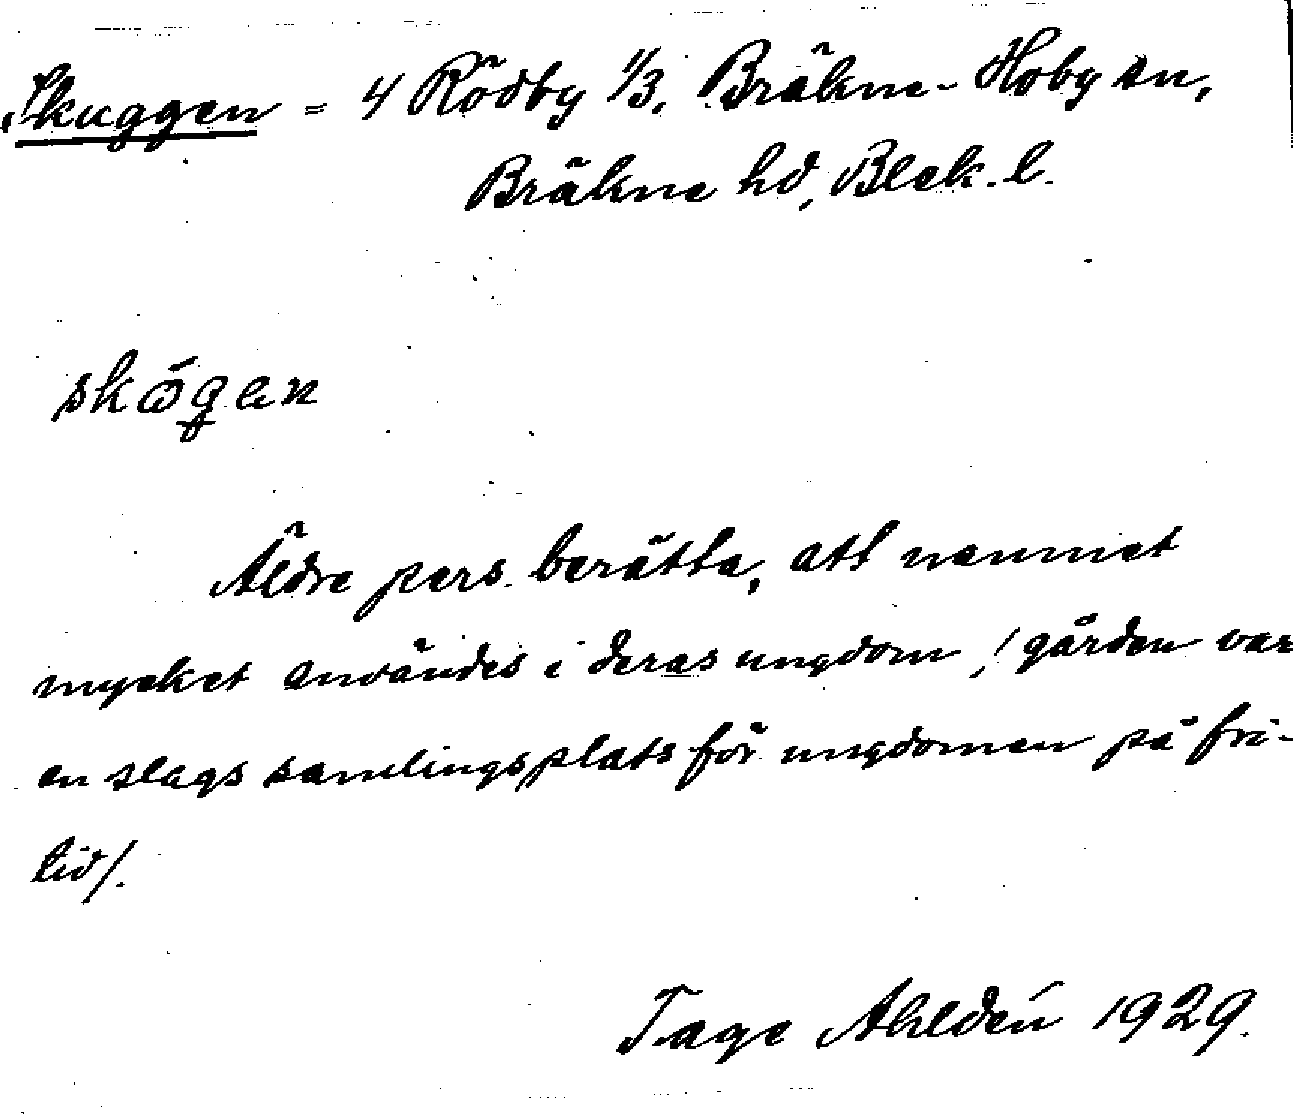 Skuggen = 4 Rödby 1/3, Bräkne-Hoby sn,
Bräkne hd, Blek. l.
Äldre pers. berätta, att namnet
mycket användes i deras ungdom, / gården var
en slags samlingsplats för ungdomen på fri-
tid/.
Tage Ahldén 1929.